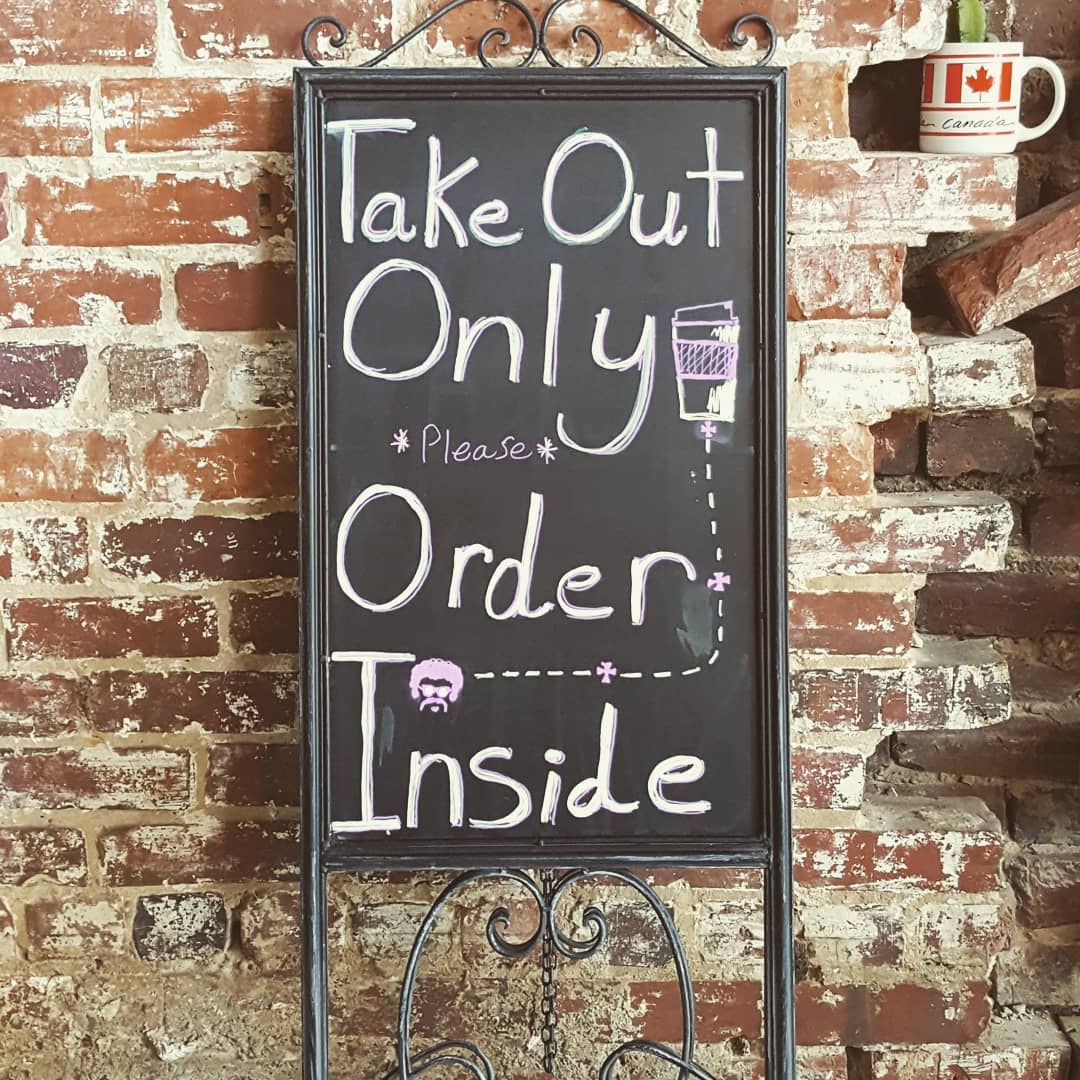 Take Out
Only
*Please*
Order
Inside
Canada